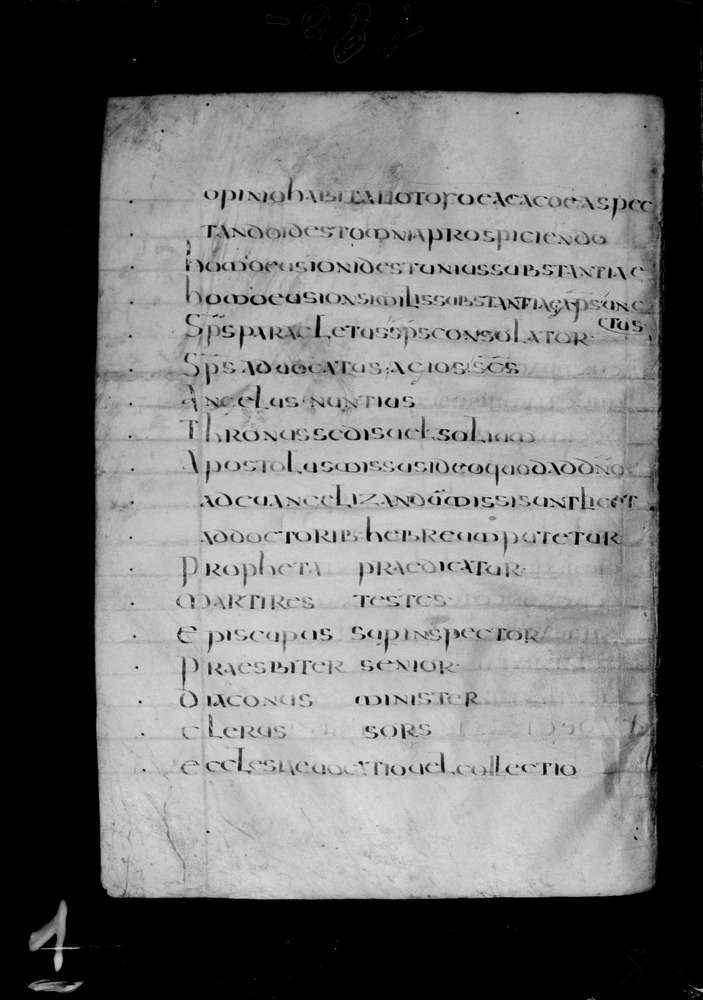 opinio habita
tando id est omnia prospiciendo
homoeusion id est unius substantiae
homoeusion similis substantiae
ctus
Sp̄s paracletus sp̄s consolator
Sp̄s aduocatus acios sc̄s
Angelus nuntius
Thronus sedis uel solium
Apostolus missus ideo quod ad dn̄o
ad euangelizandū missi sunt licet
ad doctorib hebreum putetur
Propheta praedicatur
Martires testes
Episcupus supinspector
Praesbiter senior
Diaconus minister
Clerus sors
ecclesia euocatio uel collectio
1